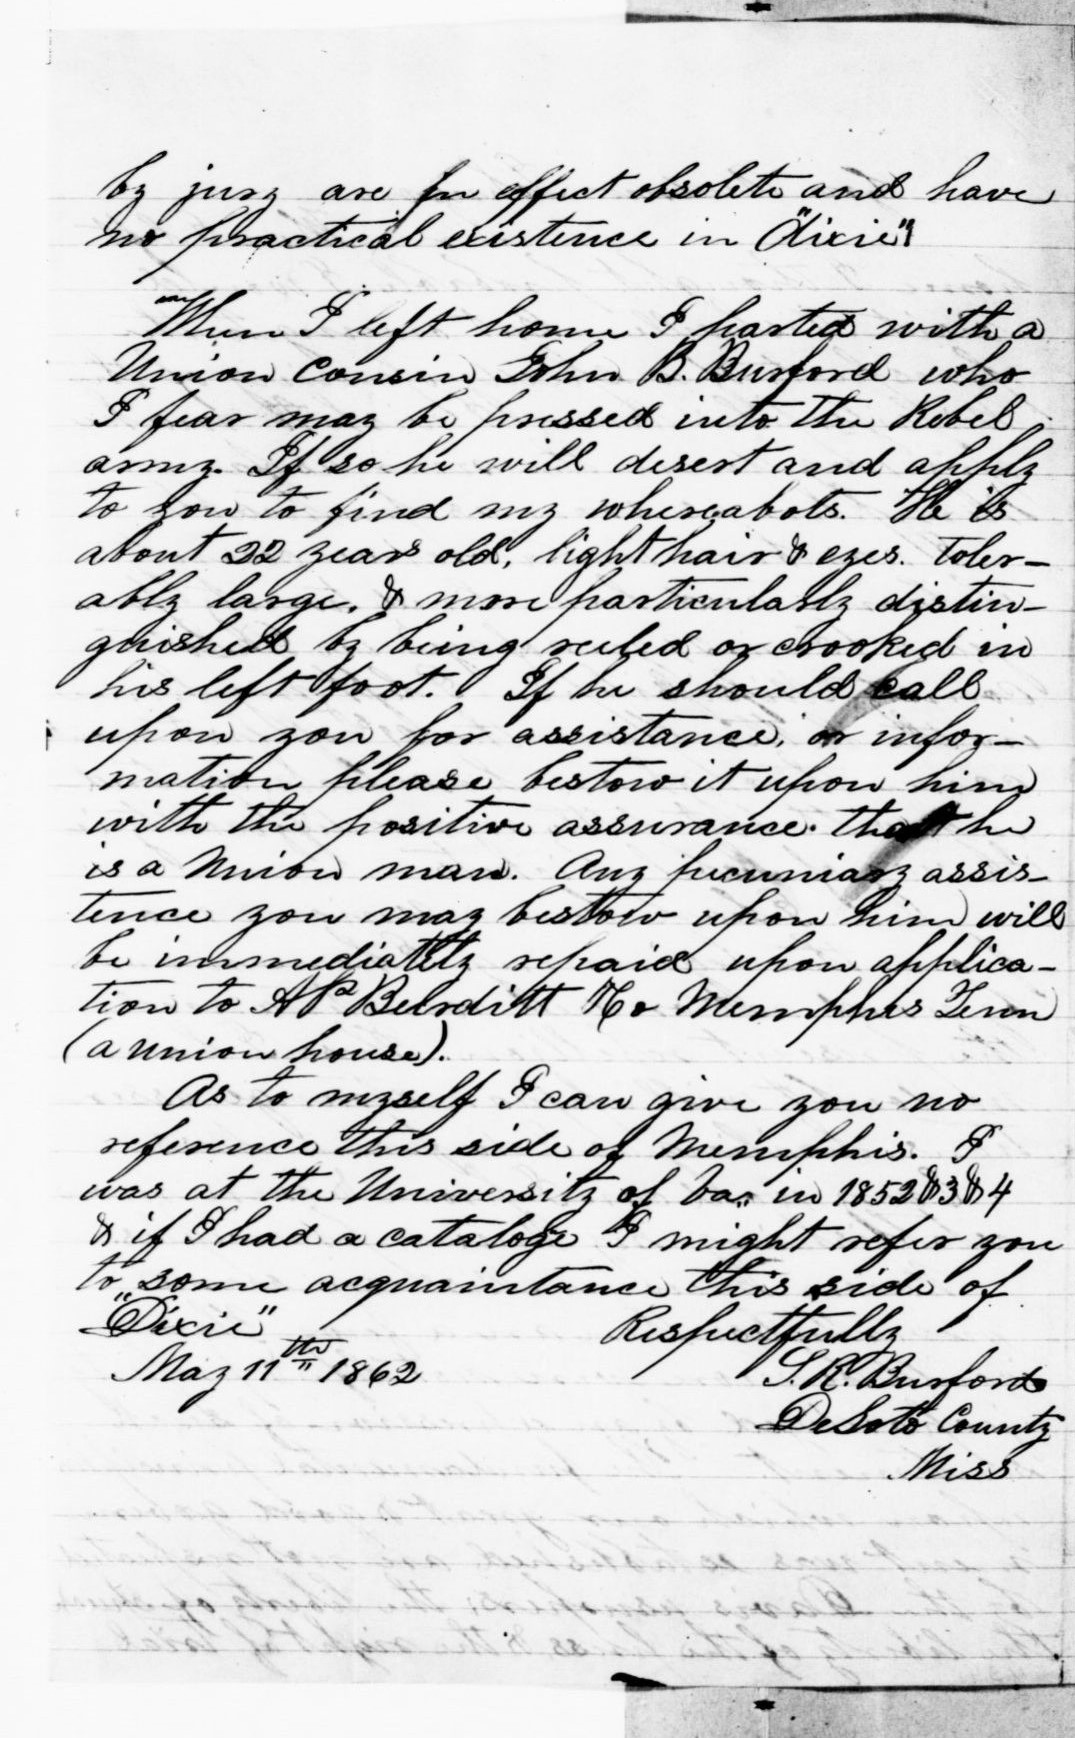 by jury are in effect obsolete and have
no practical existence in "Dixie"!
When I left home I parted with a
Union Cousin John B. Burford who
I fear may be pressed into the Rebel
army. If so he will desert and apply
to you to find my whereabots. He is
about 22 years old, light hair & eyes. Toler-
ably large, & more particularly distin-
guished by being reeled or crooked in
his left foot. If he should call
upon you for assistance, or infor-
mation please bestow it upon him
with the positive assurance that he
is a Union man. Any pecuniary assis-
tence you may bestow upon him will
be immediately repaid upon applica-
tion to Burditt & Co Memphis Tenn
(a union house).
As to myself I can give you no
reference this side of Memphis. I
was at the University of Va. in 1852 & 3 & 4
& if I had a cataloge I might refer you
to some acquaintance this side of
"Dixie" Respectfully
May 11th 1862 S. R. Burford
DeSoto County
Miss